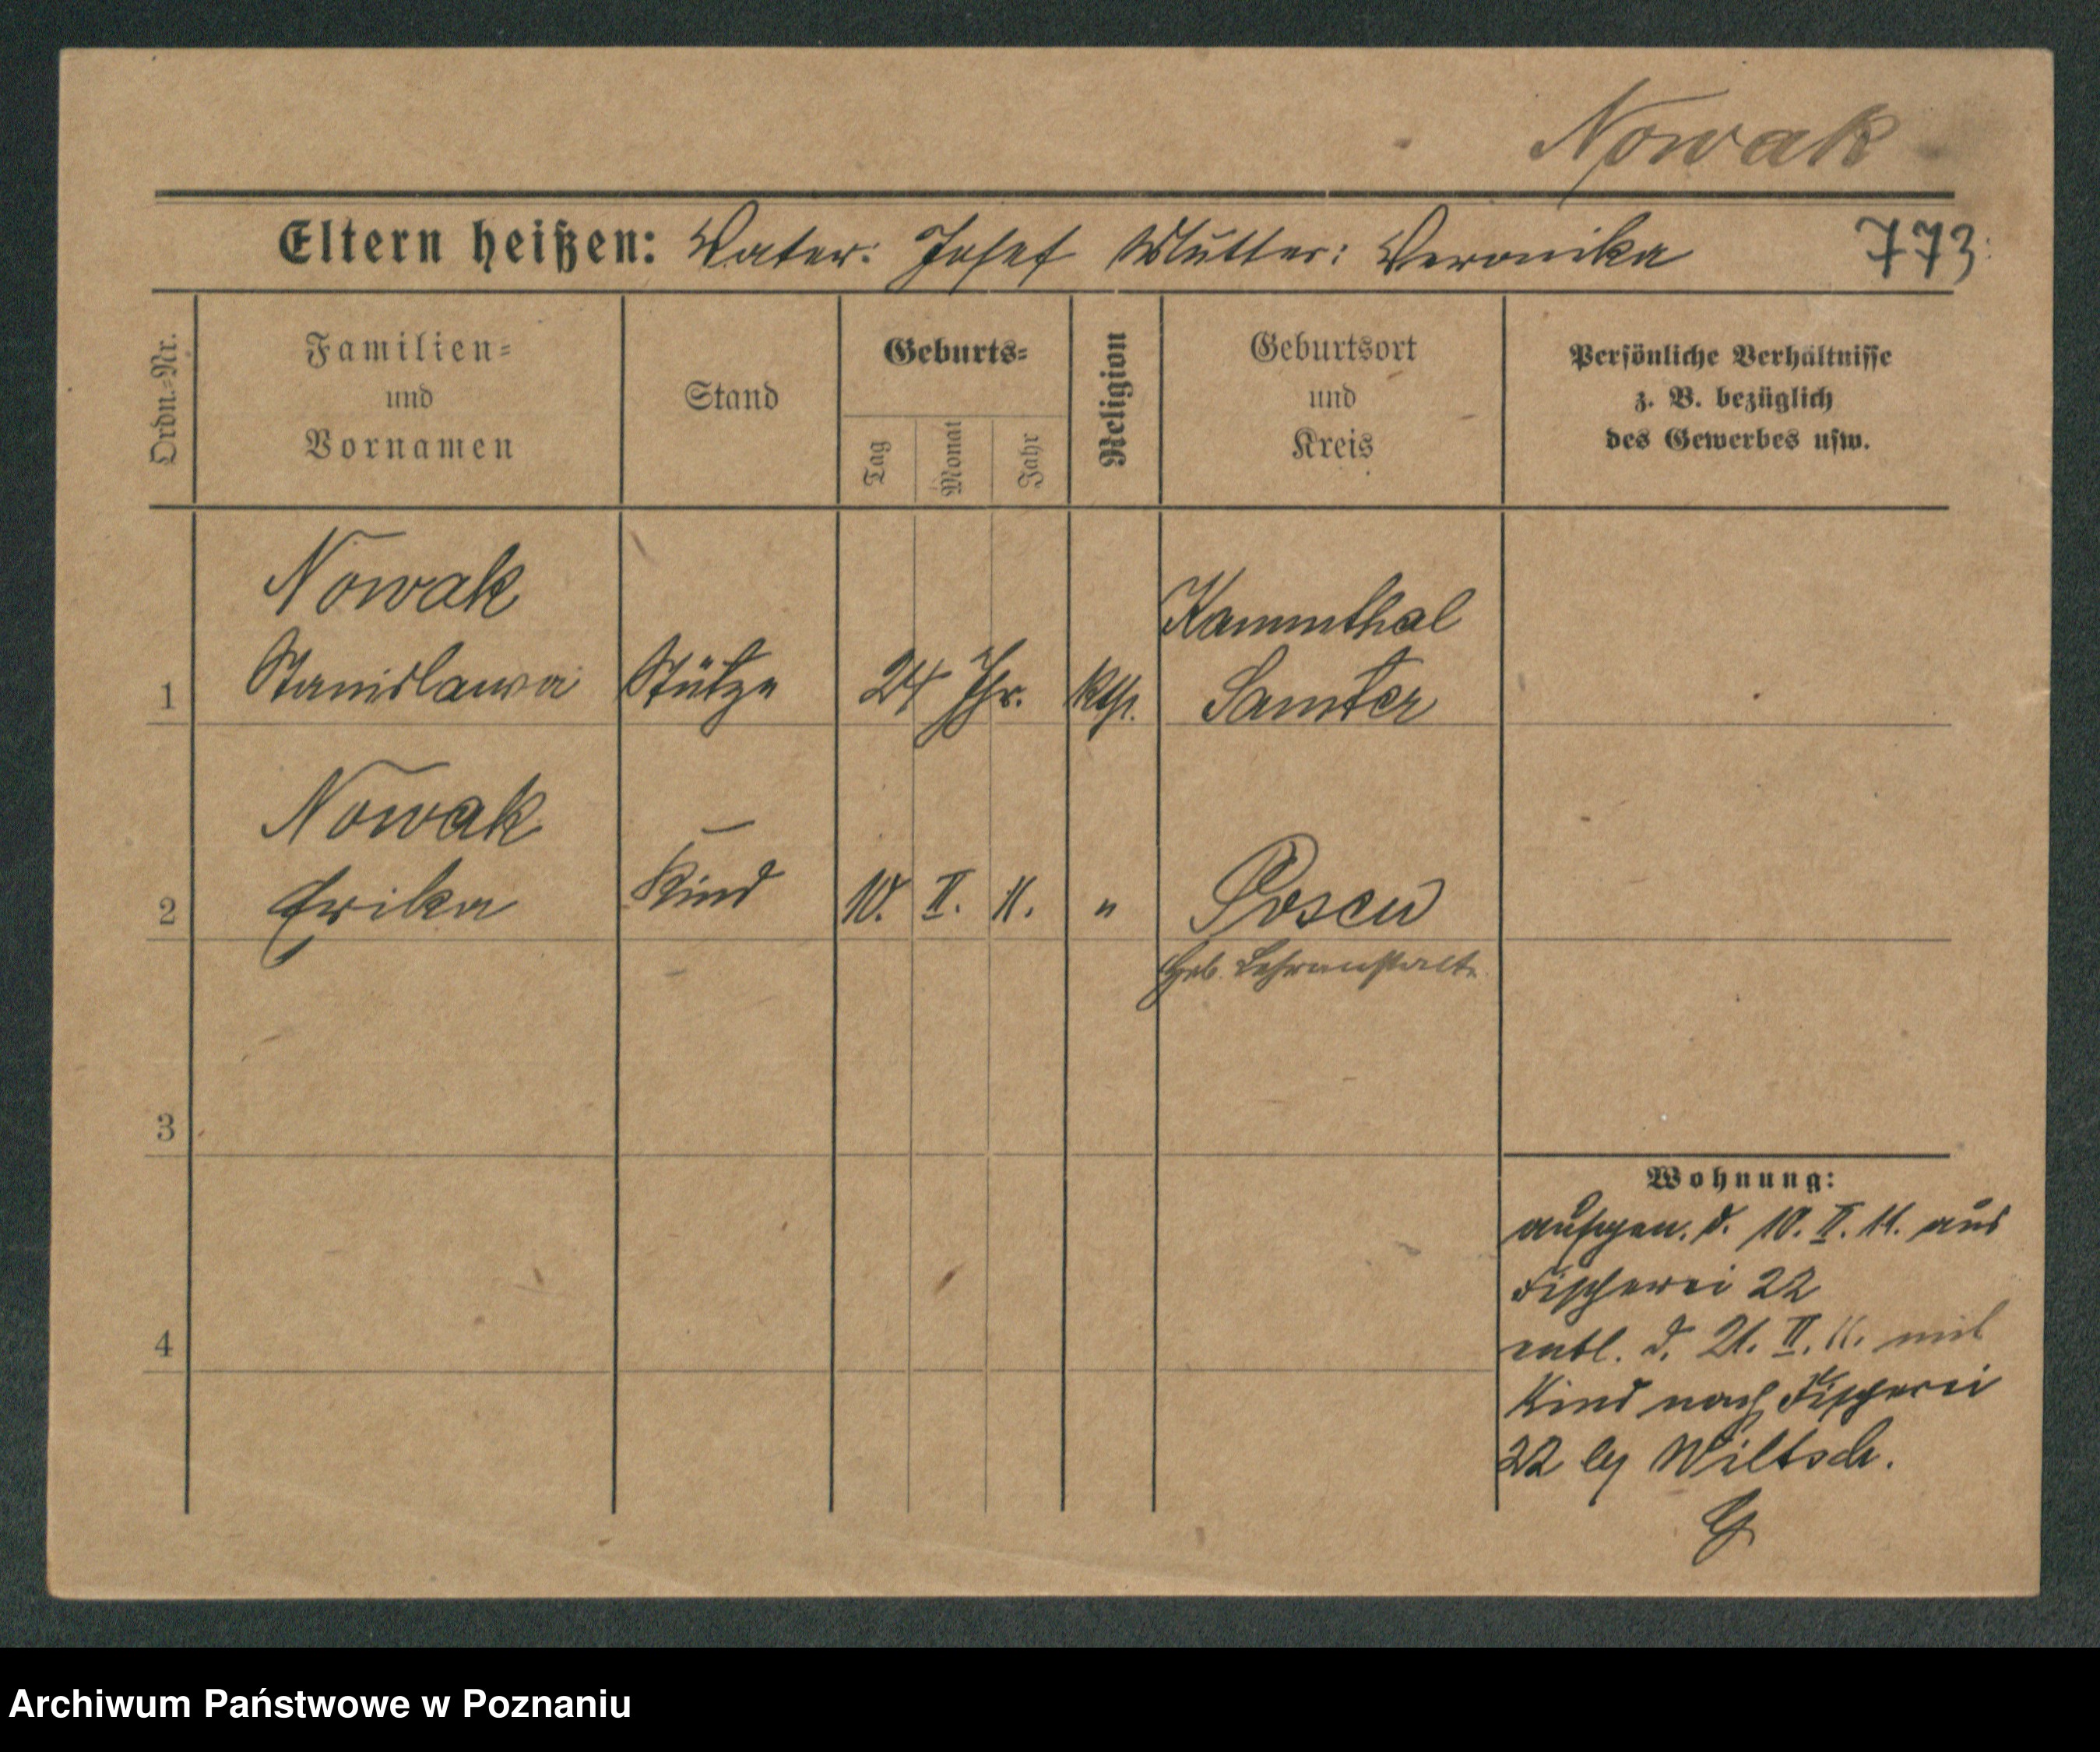 Nowak
Eltern heißen: Vater: Josef Mutter: Veronika 773
Ordn.=Nr.
Familien=
und
Vornamen
Stand
Geburts=
Tag
Monat
Jahr
Religion
Geburtsort
und
Kreis
Persönliche Verhältnisse
z. B. bezüglich
des Gewerbes usw.
Nowak
Kammthal
1 Stanislawa Stütze 24 Jhr. kth. Samter
Nowak
2 Erika Kind 10. II. 11. " Posen
Heb. Lehranstalt.
3
Wohnung:
aufgen. d. 10. II. 11. aus
Fischerei 22
4
entl. d. 21. II. 11. mit
Kind nach Fischerei
22 by Wiltsch.
Archiwum Państwowe w Poznaniu